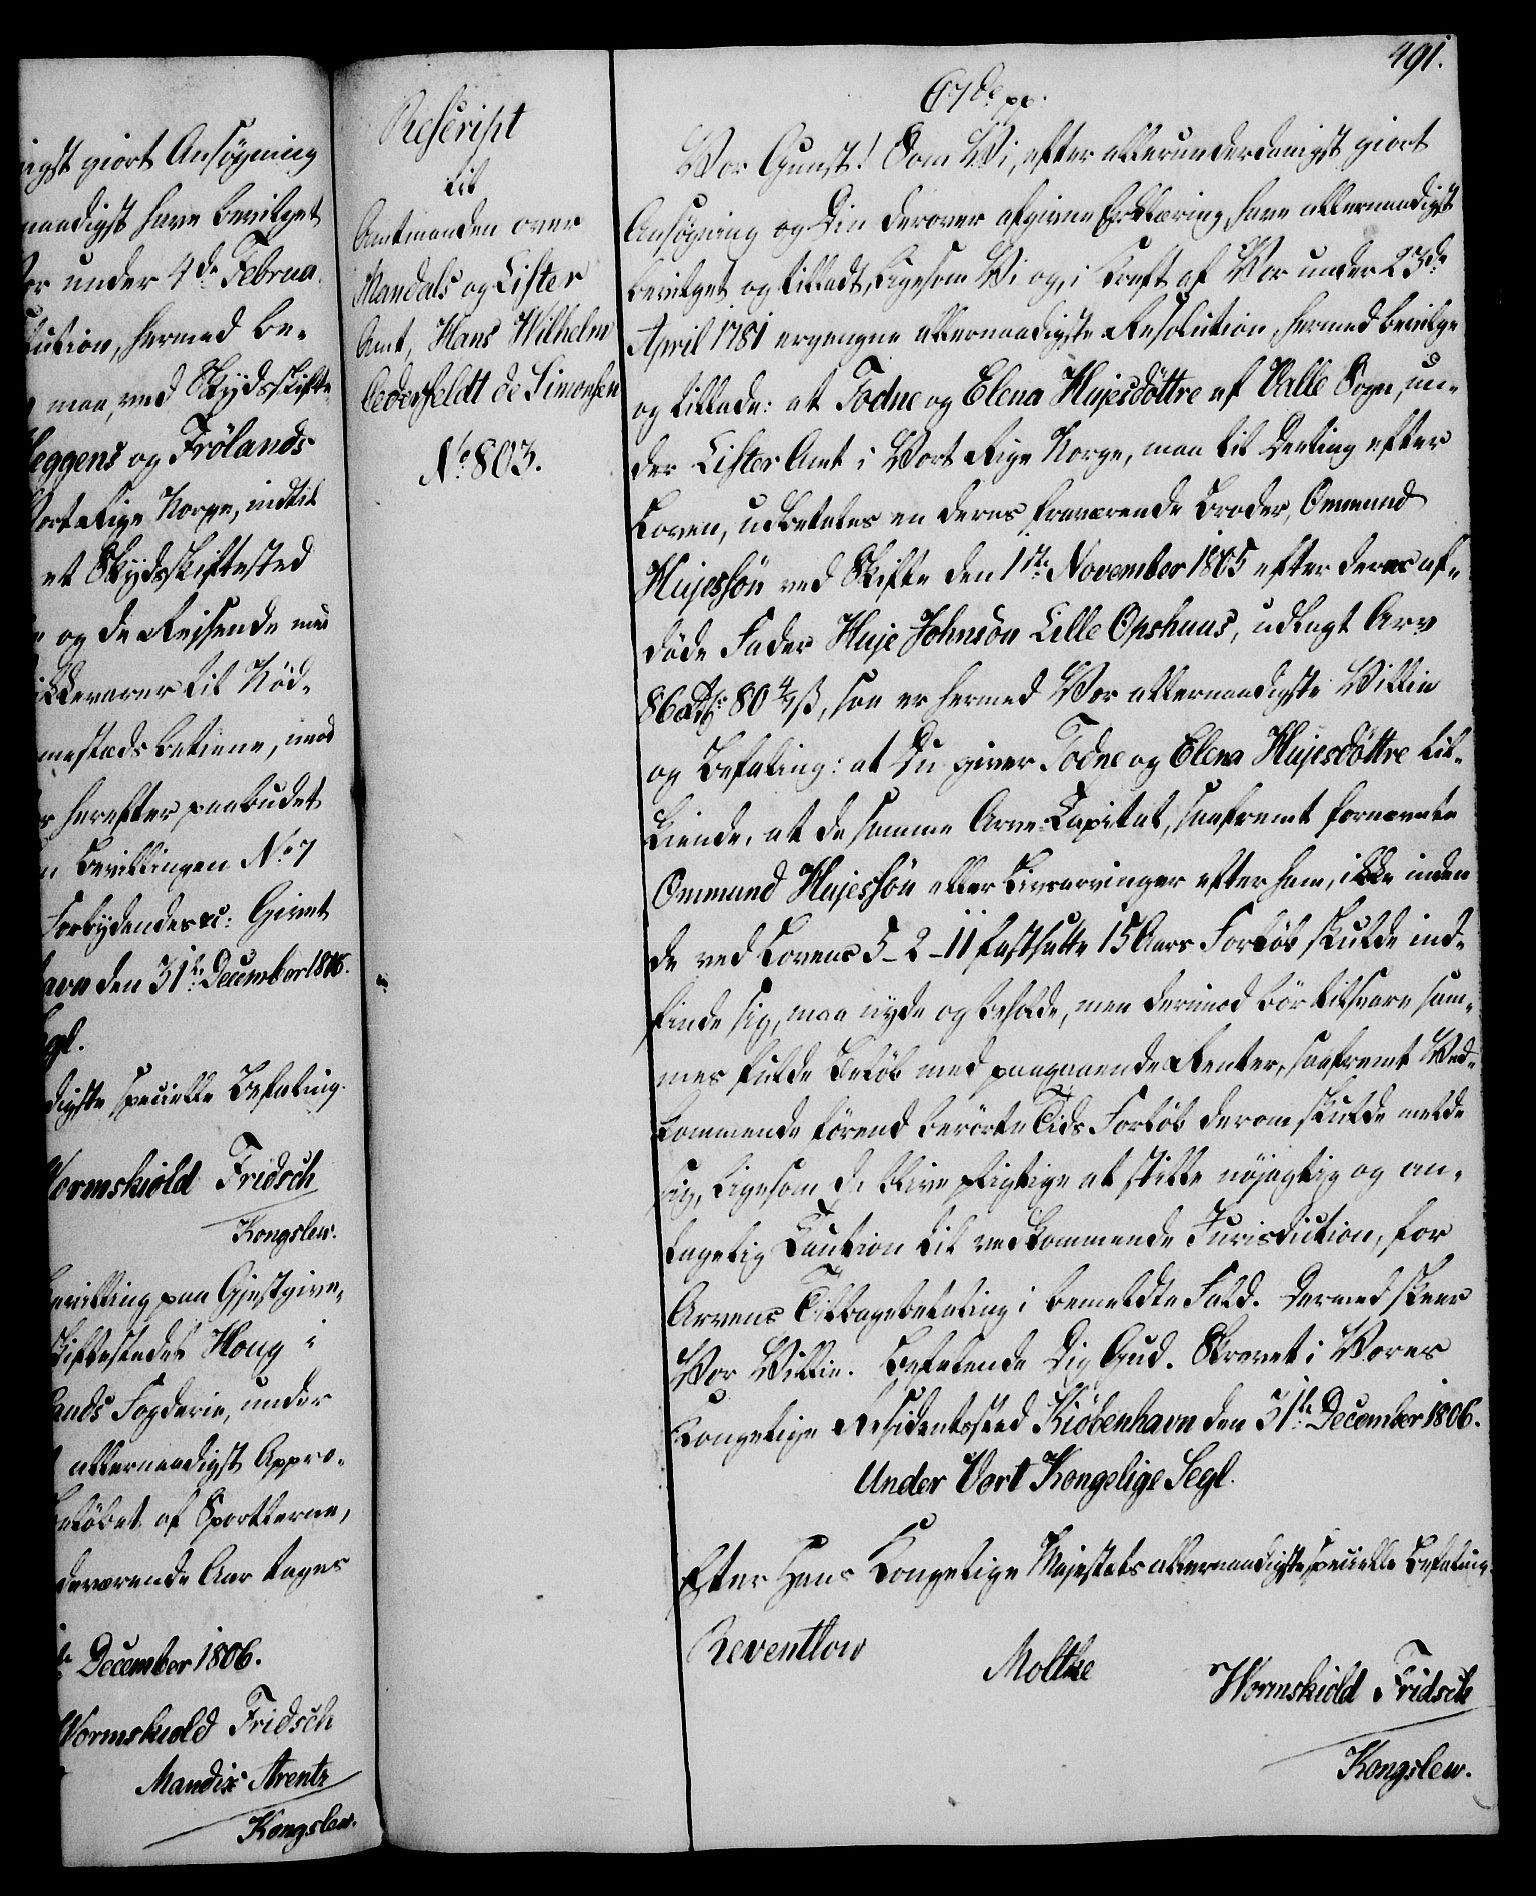 491.
igst giort Ansøgning
naadigst have bevilget
or under 4de Februa
lution, hermed be-
maa, ved Skydsskifte
Heggens og Frölands
Vort Rige Norge, indtil
et Skydsskiftested
og de Reisende med
ikkevarer til Nöd-
mestads betiene, imod
r herefter paabudet
n Bevillingen No 7
Forbydendes &c: Givet
havn den 31te December 1806.
egl.
digste specielle Befaling.
Wormskiold Fridsch
Kongslew.
Bevilling paa Gjestgive-
skiftestedet Houg i
lands Fogderie, under
allernaadigst Appro-
beløbet af Sportlerne,
deværende Aar tages
December 1806.
Wormskiold Fridsch
Mandix Arentz
Kongslew.
Rescript
til
Amtmanden over
Mandals og Lister
Amt, Hans Wilhelm
Cederfeldt de Simonsen
No. 803.
C. 7de pp.
Vor Gunst! Som Vi, efter allerunderdanigst giort
Ansøgning og Din derover afgivne Erklæring, have allernaadigst
bevilget og tilladt, ligesom Vi og, i Kraft af Vor under 23de
April 1781 ergangne allernaadigste Resolution, hermed bevilge
og tillade: at Todne og Elena Hujesdöttre af Valle Sogn, un-
der Lister Amt i Vort Rige Norge, maa til Deeling efter
Loven, udbetales en deres fraværende Broder, Ommund
Hujessön ved Skifte den 1ste November 1805 efter deres af-
døde Fader Huje Johnsön Lille Opshuus, udlagt Arv
86 Rdr 80 4/7 ß, saa er hermed Vor allernaadigste Villie
og Befaling: at Du giver Todne og Elena Hujesdöttre til-
kiende, at de samme Arve-Capital, saafremt fornævnte
Ommund Hujessön eller Livsarvinger efter ham, ikke inden
de ved Lovens 5-2-11 fastsatte 15 Aars Forløb skulde ind-
finde sig, maa nyde og beholde, men derimod bör tilsvare sam-
mes fulde Beløb med paagaaende Renter, saafremt Ved-
kommende førend berørte Tids Forløb derom skulde melde
sig, ligesom De blive pligtige at stille nöjagtig og an-
tagelig Caution til vedkommende Jurisdiction, for
Arvens Tilbagebetaling i bemeldte Fald. Dermed skeer
Vor Villie. Befalende Dig Gud. Skrevet i Vores
Kongelige Residentzstad Kiöbenhavn den 31te December 1806.
Under Vort Kongelige Segl.
Efter Hans Kongelige Majestets allernaadigste specielle Befaling.
Reventlow Moltke Wormskiold Fridsch
Kongslew.